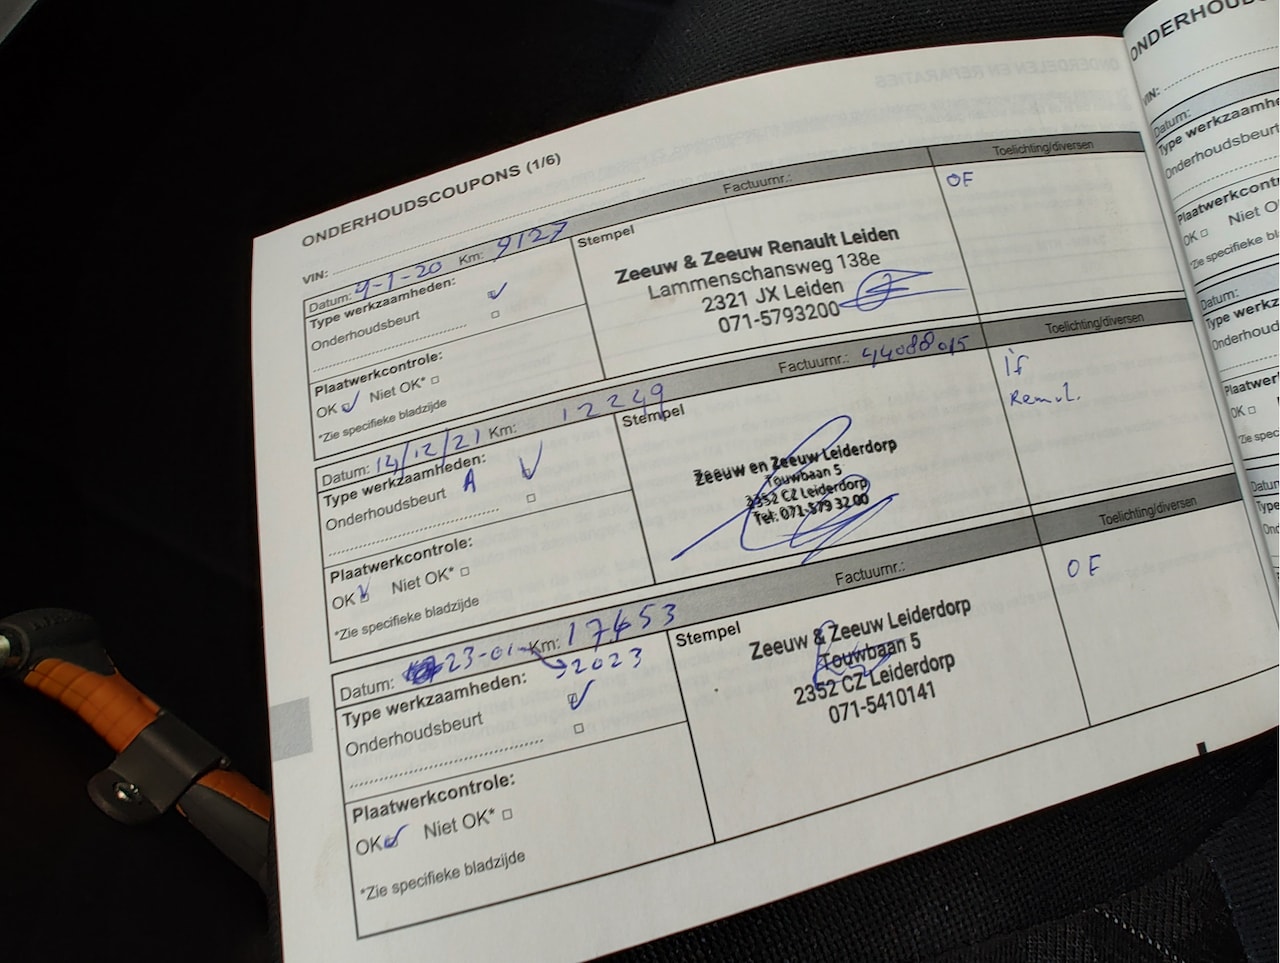 ONDERHOUDSCOUPONS (1/6)
VIN:
Datum: 9-1-20 Km: 9127 Factuurnr.: Toelichting/diversen
Type werkzaamheden:
Onderhoudsbeurt
Plaatwerkcontrole:
OK Niet OK*
*Zie specifieke bladzijde
Stempel
Zeeuw & Zeeuw Renault Leiden
Lammenschansweg 138e
2321 JX Leiden
071-5793200
OF
Datum: 14/12/21 Km: 12249 Factuurnr.: Toelichting/diversen
Type werkzaamheden:
Onderhoudsbeurt A
Plaatwerkcontrole:
OK Niet OK*
*Zie specifieke bladzijde
Stempel
Zeeuw en Zeeuw Leiderdorp
Touwbaan 5
2352 CZ Leiderdorp
Tel: 071-579 32 00
Datum: 23-01-2023 Km: 17453 Factuurnr.: Toelichting/diversen
Type werkzaamheden:
Onderhoudsbeurt
Plaatwerkcontrole:
OK Niet OK*
*Zie specifieke bladzijde
Stempel
Zeeuw & Zeeuw Leiderdorp
Touwbaan 5
2352 CZ Leiderdorp
071-5410141
OF
VIN:
Datum:
Type
OK Niet
Datum:
Type
OK